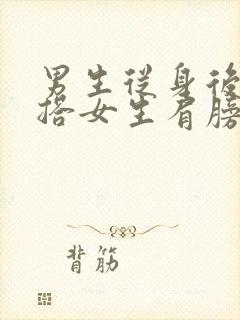 男生從身後
搭女生肩膀
背筋